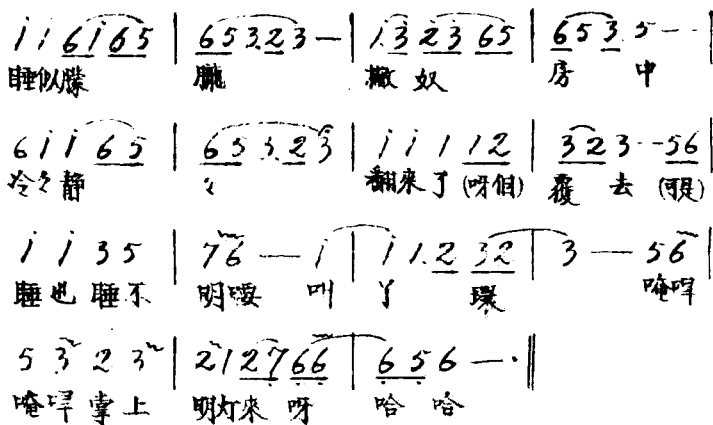 i i 6 i 6 5 | 6 5 3. 2 3 — | i. 3 2 3 6 5 | 6 5 3. 5 - - |
睡似朦 朧 撇奴 房中
6 i i 6 5 | 6 5 3. 2 3 | i i 1 1 2 | 3 2 3 - - 5 6 |
冷々静 々 翻来了(呀但) 覆去(可是)
i i 3 5 | 7 6 — i | i 1. 2 3 2 | 3 — 5 6 |
睡也睡不 明 叫 丫 環 唵哶
5 3 2 3 | 2 1 2 7 6 6 | 6 5 6 — · ||
唵哶掌上 明灯來呀 哈哈